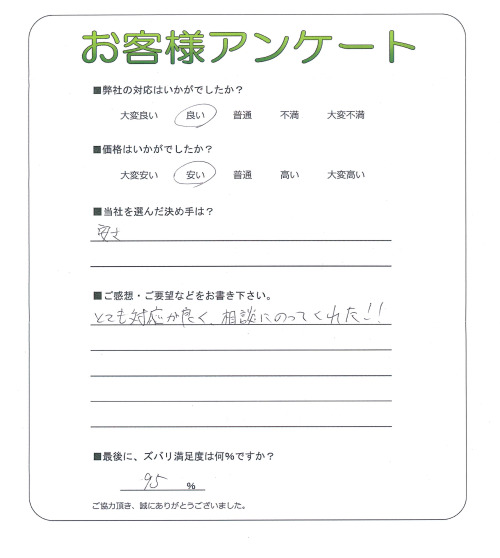 お客様アンケート
■弊社の対応はいかがでしたか?
大変良い 良い 普通 不満 大変不満
■価格はいかがでしたか?
大変安い 安い 普通 高い 大変高い
■当社を選んだ決め手は?
安さ
■ご感想・ご要望などをお書き下さい。
とても対応が良く、相談にのってくれた!!
■最後に、ズバリ満足度は何%ですか?
95 %
ご協力頂き、誠にありがとうございました。